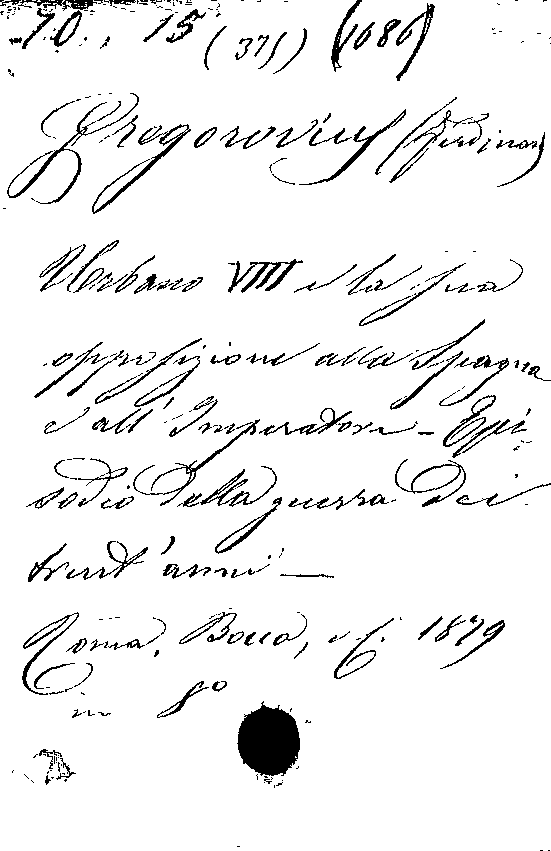 70., 15 (375) (1686)
Gregorovius (Ferdinan)
Urbano VIII e la sua
opposizione alla Spagna
e all'Imperatore - Epi
sodio della guerra dei
trent'anni —
Roma, Bocca, e C. 1879
in 8º